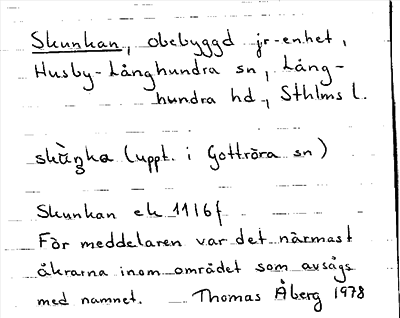 Skunkan, obebyggd jr-enhet,
Husby-Långhundra sn, Lång-
hundra hd, Sthlms l.
skùŋka (uppt. i Gottröra sn)
Skunkan ek 11 I 6 f
För meddelaren var det närmast
åkrarna inom området som avsågs
med namnet. Thomas Åberg 1978